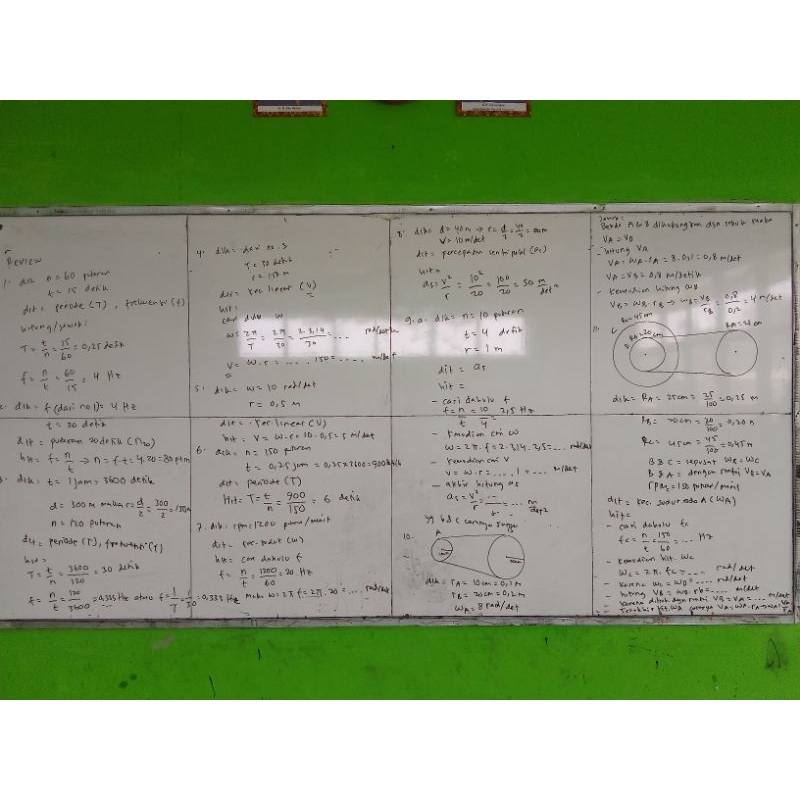 REVIEW
1. dik n = 60 putaran
t = 15 detik
dit = periode (T), frekuensi (f)
hitung/jawab:
T = t/n = 15/60 = 0,25 detik
f = n/t = 60/15 = 4 Hz
dik = f (dari no 1) = 4 Hz
t = 20 detik
dit = putaran 20 detik (n20)
hit = f = n/t → n = f.t = 4.20 = 80 ptrn
t = 1 jam = 3600 detik
d = 300 m maka r = d/2 = 300/2 = 150 m
n = 120 putaran
dit = periode (T), frekuensi (f)
T = t/n = 3600/120 = 30 detik
f = n/t = 120/3600 = 0,333 Hz atau f = 1/T = 1/30 = 0,333 Hz
4. dik = dari no. 3
T = 30 detik
r = 150 m
dit = kec. linear (V)
hit:
cari dulu w
w = 2π/T = 2π/30 = 2.3,14/30 = .... rad/detik
V = w.r = .... . 150 = .... m/det
5. dik = w = 10 rad/det
r = 0,5 m
dit = kec. linear (V)
hit = V = w.r = 10.0,5 = 5 m/det
6. dik = n = 150 putaran
t = 0,25 jam = 0,25 x 3600 = 900 detik
dit = periode (T)
Hit = T = t/n = 900/150 = 6 detik
7. dik. rpm = 1200 putaran/menit
dit = kec. sudut (w)
hit = cari dahulu f
f = n/t = 1200/60 = 20 Hz
maka w = 2π f = 2π. 20 = .... rad/det
8. dik = d = 40 m → r = d/2 = 40/2 = 20 m
V = 10 m/det
dit = percepatan sentripetal (as)
hit =
as = v²/r = 10²/20 = 100/20 = 50 m/det²
9. a. dik = n = 10 putaran
t = 4 detik
r = 1 m
dit = as
hit =
- cari dahulu f
f = n/t = 10/4 = 2,5 Hz
- kemudian cari w
w = 2π. f = 2.3,14.2,5 = .... rad/det
- kemudian cari V
V = w.r = .... . 1 = .... m/det
- akhir hitung as
as = v²/r = .... = .... m/det²
yg b d c caranya sama
10.
A
dik = rA = 10 cm = 0,1 m
rB = 20 cm = 0,2 m
wA = 8 rad/det
Jawab =
Benda A & B dihubungkan dgn sebuah rantai
VA = VB
- hitung VA
VA = wA . rA = 8.0,1 = 0,8 m/det
VA = VB = 0,8 m/detik
- kemudian hitung wB
VB = wB . rB → wB = VB/rB = 0,8/0,2 = 4 m/s
RC = 45 cm
RB = 20 cm
RA = 25 cm
dik = RA = 25 cm = 25/100 = 0,25 m
RB = 20 cm = 20/100 = 0,20 m
RC = 45 cm = 45/100 = 0,45 m
B & C = seporos wB = wC
B & A = dengan rantai VB = VA
rpmC = 150 putaran/menit
dit = kec. sudut roda A (WA)
hit =
- cari dahulu fc
fc = n/t = 150/60 = .... Hz
- kemudian hit. wc
wc = 2π. fc = .... rad/det
- karena wc = wB = .... rad/det
- hitung VB = wB . rB = .... m/det
- karena dihub dgn rantai VB = VA = .... m/det